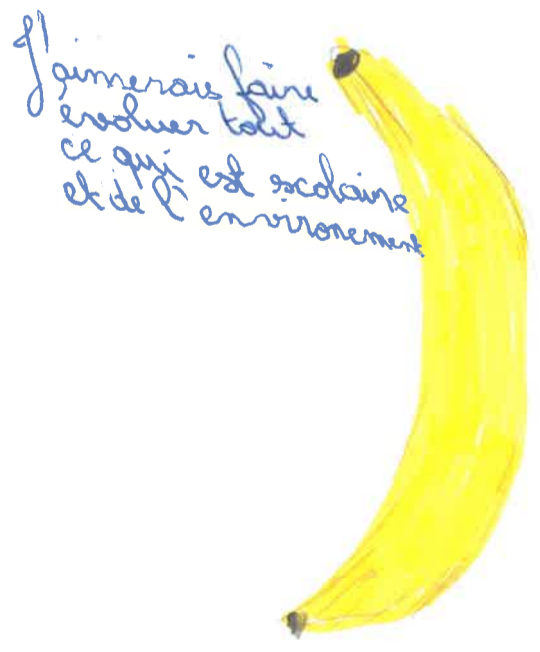 J'aimerais faire
évoluer tout
ce qui est scolaire
et de l'environement